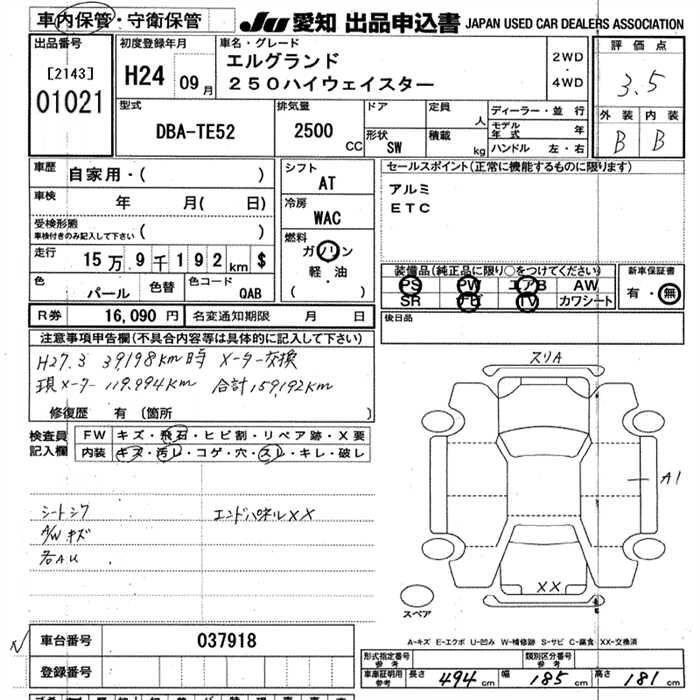 車内保管・守衛保管
JU 愛知 出品申込書 JAPAN USED CAR DEALERS ASSOCIATION
出品番号
[2143]
01021
初度登録年月
H24 09月
車名・グレード
エルグランド
250ハイウェイスター
2WD
・
4WD
評価点
3.5
外装 内装
B B
型式
DBA-TE52
排気量
2500 CC
ドア
形状 SW
定員 人
積載 kg
ディーラー・並行
モデル年式
ハンドル 左・右
車歴 自家用・( )
車検 年 月( 日)
受検形態
車検付きのみ記入して下さい ( )
走行 15万9千192km $
色 パール
色替
色コード QAB
シフト
AT
冷房
WAC
燃料
ガソリン
軽・油
( )
セールスポイント(正常に機能するものに限ります)
アルミ
ETC
装備品(純正品に限り○をつけてください)
PS PW エアB AW
SR ナビ TV カワシート
新車保証書
有・無
R券 16,090円 名変通知期限 月 日
後日品
注意事項申告欄(不具合内容等は具体的に記入して下さい)
H27.3 39,198km時 メーター交換
現メーター 119,994km 合計159,192km
修復歴 有〔箇所 〕
検査員記入欄
FW キズ・飛石・ヒビ割・リペア跡・X要
内装 キズ・汚レ・コゲ・穴・スレ・キレ・破レ
シートシワ
A/Wキズ
右AU
エンドパネルXX
スリA
A1
XX
スペア
A-キズ E-エクボ U-凹み W-補修跡 S-サビ C-腐食 XX-交換済
車台番号 037918
登録番号
形式指定番号 参考
類別区分番号 参考
車庫証明用 参考 長さ 494cm 幅 185cm 高さ 181cm